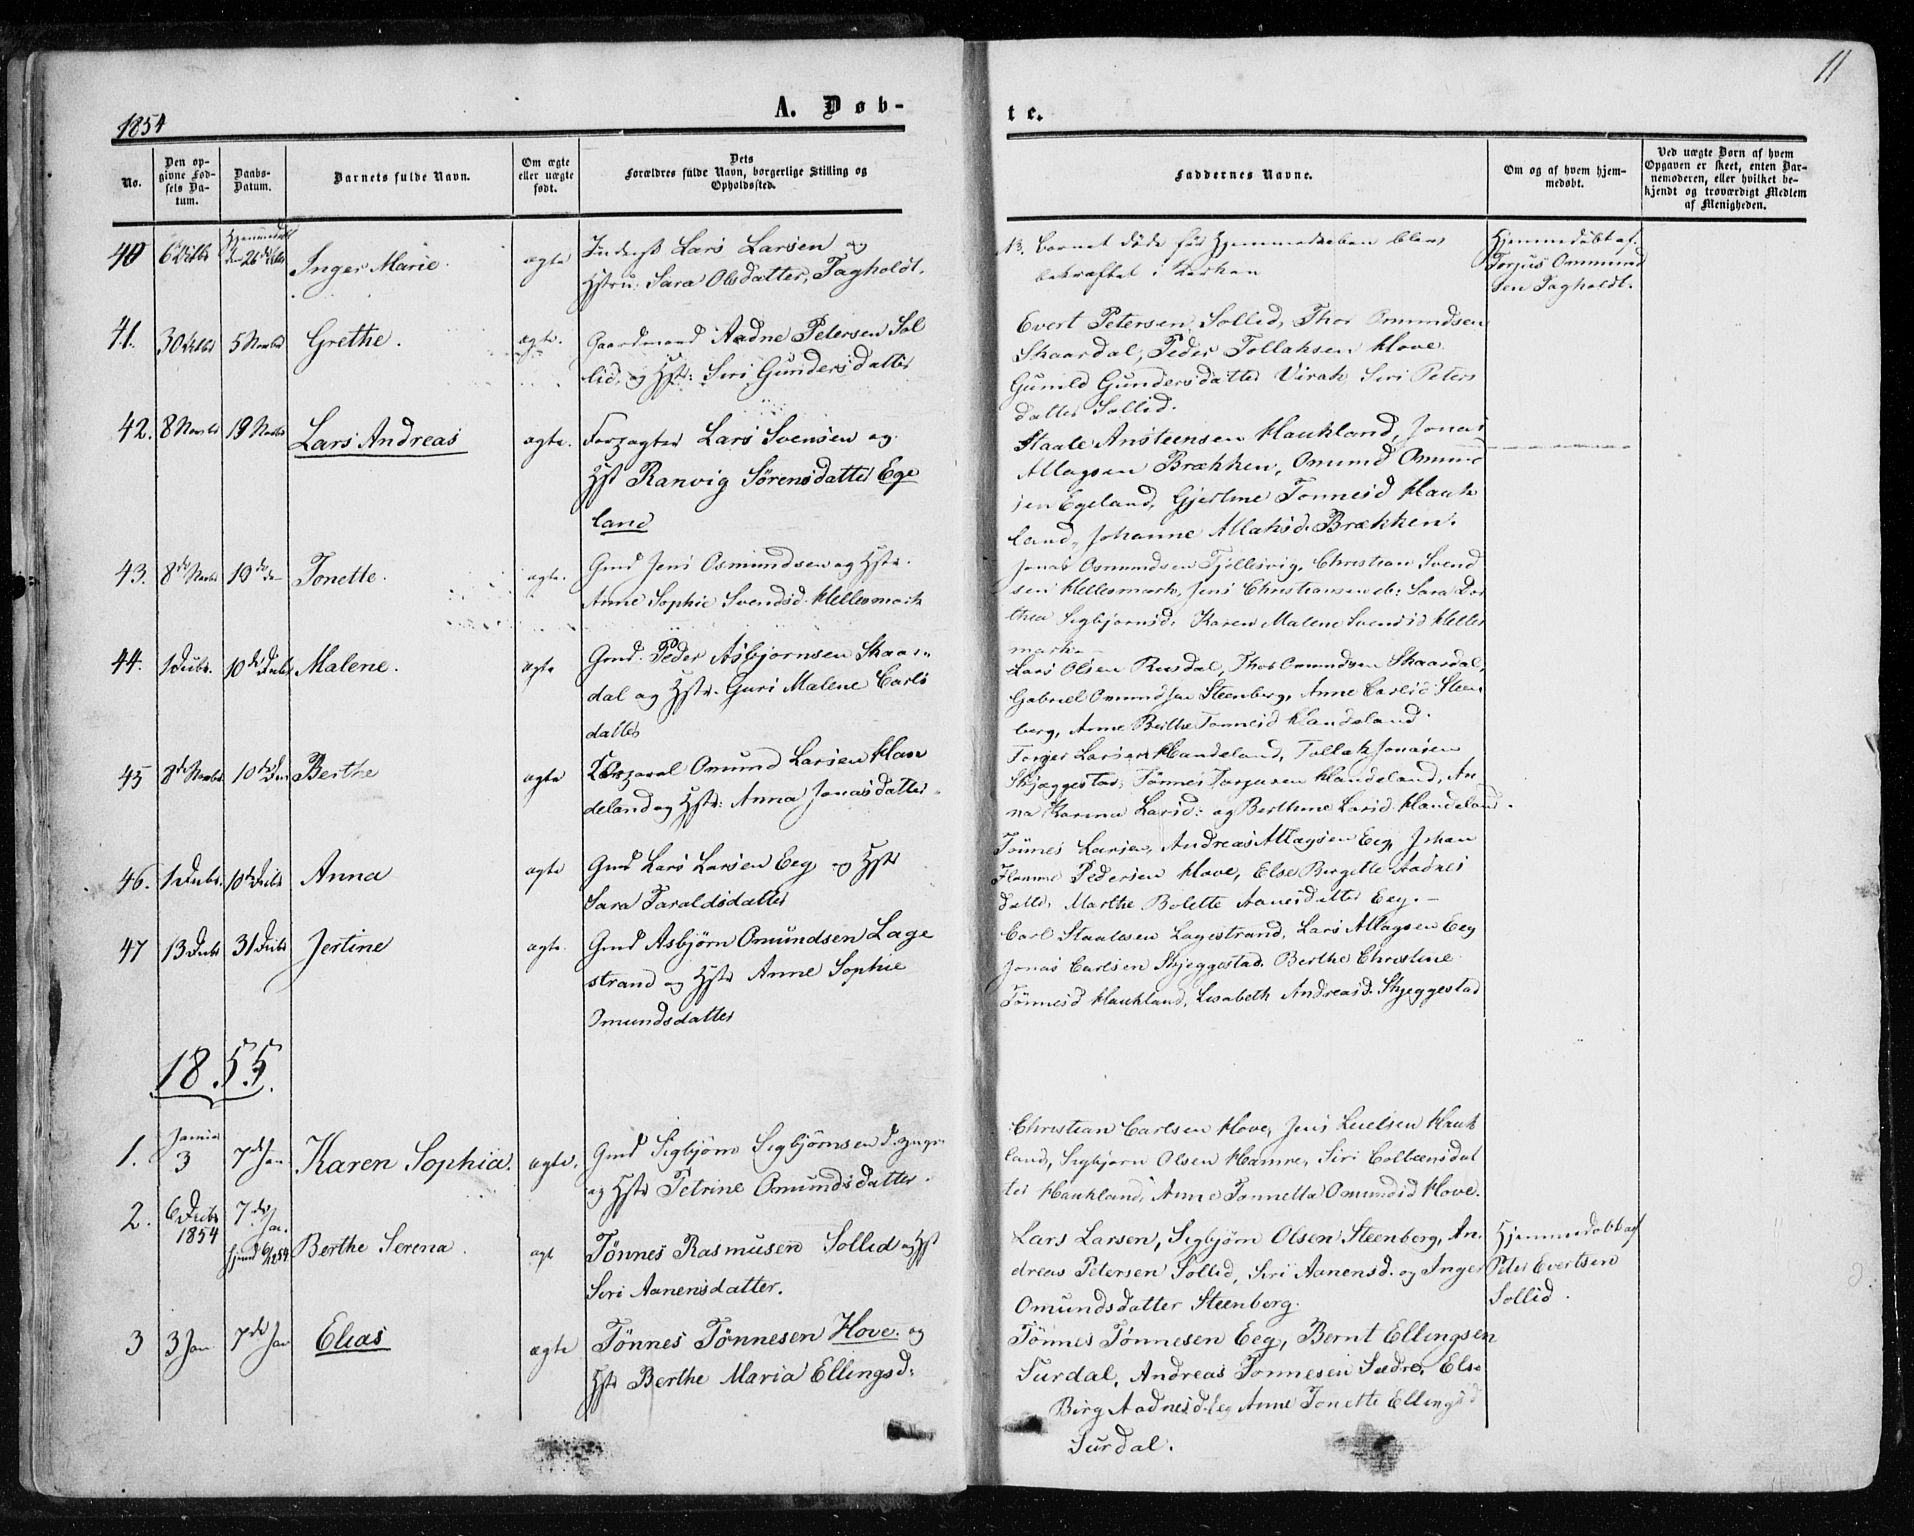 11
1854
A. Døb-
te.
No.
Den opgivne Fødsels Datum.
Daabs-Datum.
Barnets fulde Navn.
Om ægte eller uægte født.
Dets Forældres fulde Navn, borgerlige Stilling og Opholdssted.
Faddernes Navne.
Om og af hvem hjemmedøbt.
Ved uægte Børn af hvem Opgaven er skeet, enten Barnemoderen, eller hvilket bekjendt og troværdigt Medlem af Menigheden.
40 6 Octbr 26 Octbr Inger Marie. ægte
Lars Larsen og
Hstru: Sara Olsdatter, Tagholdt.
Barnet døde før Hjemmedaaben blev
bekræftet i Kirken
Hjemmedøbt af
Torjus Ommund
sen Tagholdt.
41. 30 Octbr 5 Novbr Grethe. ægte.
Gaardmand Aadne Petersen Sol
lid, og Hstr: Siri Gundersdatter
Evert Petersen Sollid, Thor Omundsen
Skaardal, Peder Tollaksen Hove
Gunild Gundersdatter Virak, Siri Peters
datter Sollid.
42. 8 Novbr 19 Novbr Lars Andreas ægte.
Forpagter Lars Svensen og
Hst Ranvig Sørensdatter Ege
land
Staale Ansteensen Haukland, Jonas
Atlagsen Brækken, Omund Omund
sen Egeland, Gjertine Tønnesd Hauk
land, Johanne Atlaksd. Brækken.
43. 8de Novbr 19de Tonette. ægte.
Gmd Jens Osmundsen og Hstr.
Anne Sophie Svendsd. Hellesmark
Jonas Osmundsen Fjellesvig, Christian Svend
sen Hellesmark, Jens Christiansen ib: Sara Dor
thea Sigbjørnsd. Karen Malene Svensd Helles
mark
44. 1 Decbr. 10de Decbr Malene. ægte
Gmd. Peder Asbjørnsen Skaar
dal og Hstr. Guri Malene Carls
datter
Lars Olsen Rusdal, Thor Omundsen Skaardal,
Gabriel Omundsen Steenberg, Anne Carlsd Steen
berg, Anne Berthe Tønnesd Handeland.
45 8de Novbr 10de Berthe ægte
Omund Larsen Han
deland og Hstr: Anna Jonasdatter.
Torger Larsen Handeland, Tollak Jonasen
Skjæggestad, Tønnes Torjusen Handeland, An
na Karina Larsd: og Berthine Larsd. Handeland.
46. 1 Decbr. 10de Decbr Anna ægte
Gmd Lars Larsen Eeg og Hstr
Sara Taraldsdatter
Tønnes Larsen, Andreas Atlagsen Eeg, Johan
Pedersen Hove, Else Birgette Aadnes
datter, Marthe Bolette Aanesdatter Eeg.
47 13 Decbr 31 Decbr Jertine ægte.
Gmd Asbjørn Omundsen Lage
strand og Hstr Anne Sophie
Omundsdatter
Carl Staalesen Lagestrand, Lars Atlagsen Eeg
Jonas Carlsen Skjeggestad. Berthe Christine
Tønnesd Haukland, Lisabeth Andreasd. Skjeggestad
1855.
1. Januar 3 7de Jan Karen Sophia. ægte.
Gmd Sigbjørn Sigbjørnsen
og Hstr Petrine Omundsdatter.
Christian Carlsen Hove, Jens Leielsen Hauk
land, Sigbjørn Olsen Hamre, Siri Colbeensdat
ter Haukland, Anne Tonnetta Omundsd Hove.
2. 6 Decbr 1854 7de Jan. hjmd 6/12 54 Berthe Serena. ægt
Tønnes Rasmusen Sollid og Hst
Siri Aanensdatter.
Lars Larsen, Sigbjørn Olsen Steenberg, An
dreas Petersen Sollid, Siri Aanensd. og Inger
Omundsdatter Steenberg.
Hjemmedøbt af
Peter Evertsen
Sollid.
3 3 Jan 7de Jan Elias ægte
Tønnes Tønnesen Hove. og
Hstr Berthe Maria Ellingsd:
Tønnes Tønnesen Eeg, Bernt Ellingsen
Surdal, Andreas Tønnesen Sædre, Else
Birg Aadnesd. Eeg Anne Tonette Ellingsd
Surdal.